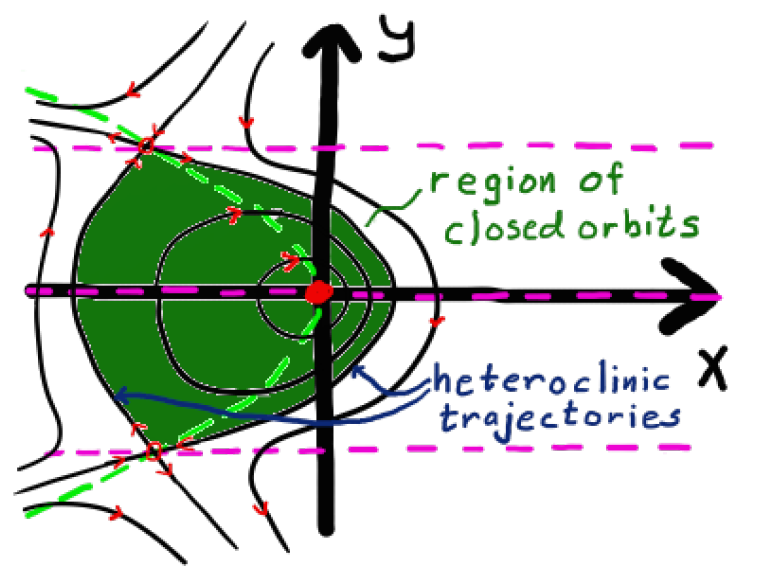 y
region of
closed orbits
x
heteroclinic
trajectories